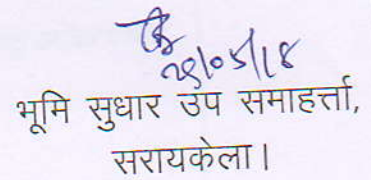 29/05/18
भूमि सुधार उप समाहर्त्ता,
सरायकेला।